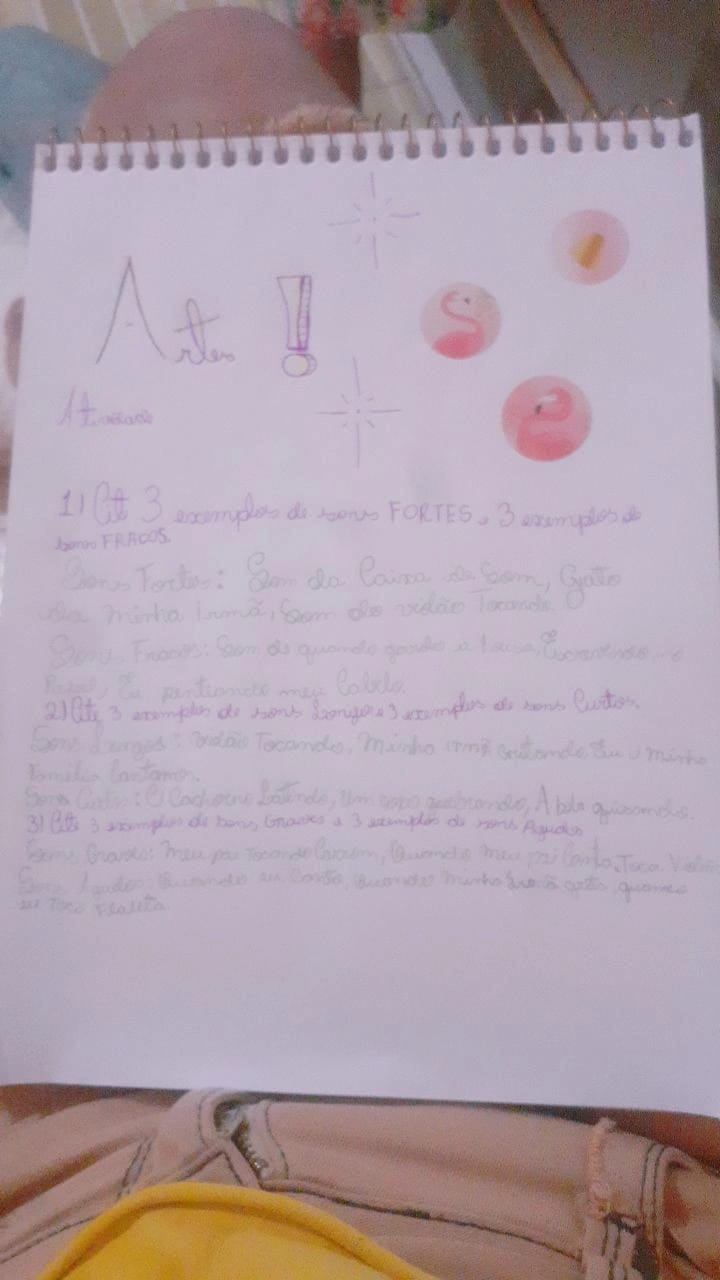 Artes !
Atividade
1) Cite 3 exemplos de sons FORTES e 3 exemplos de
sons FRACOS.
Sons Fortes: Som da Caixa de Som, Grito
da minha Irmã, Som do violão Tocando.
Sons Fracos: Som de quando guardo a louça, Escrevendo no
Papel, Eu penteando meu Cabelo.
2) Cite 3 exemplos de sons Longos e 3 exemplos de sons Curtos.
Sons Longos: violão Tocando, Minha irmã gritando, Eu e minha
família Cantamos.
Sons Curtos: O Cachorro Latindo, Um copo quebrando, A bola
3) Cite 3 exemplos de Sons Graves e 3 exemplos de sons Agudos
Sons Graves: Meu pai Tocando, Quando meu pai Canta, Toca Violão
Sons Agudos: Quando eu Canto, quando minha Irmã grita, quando
eu Toco Flauta.